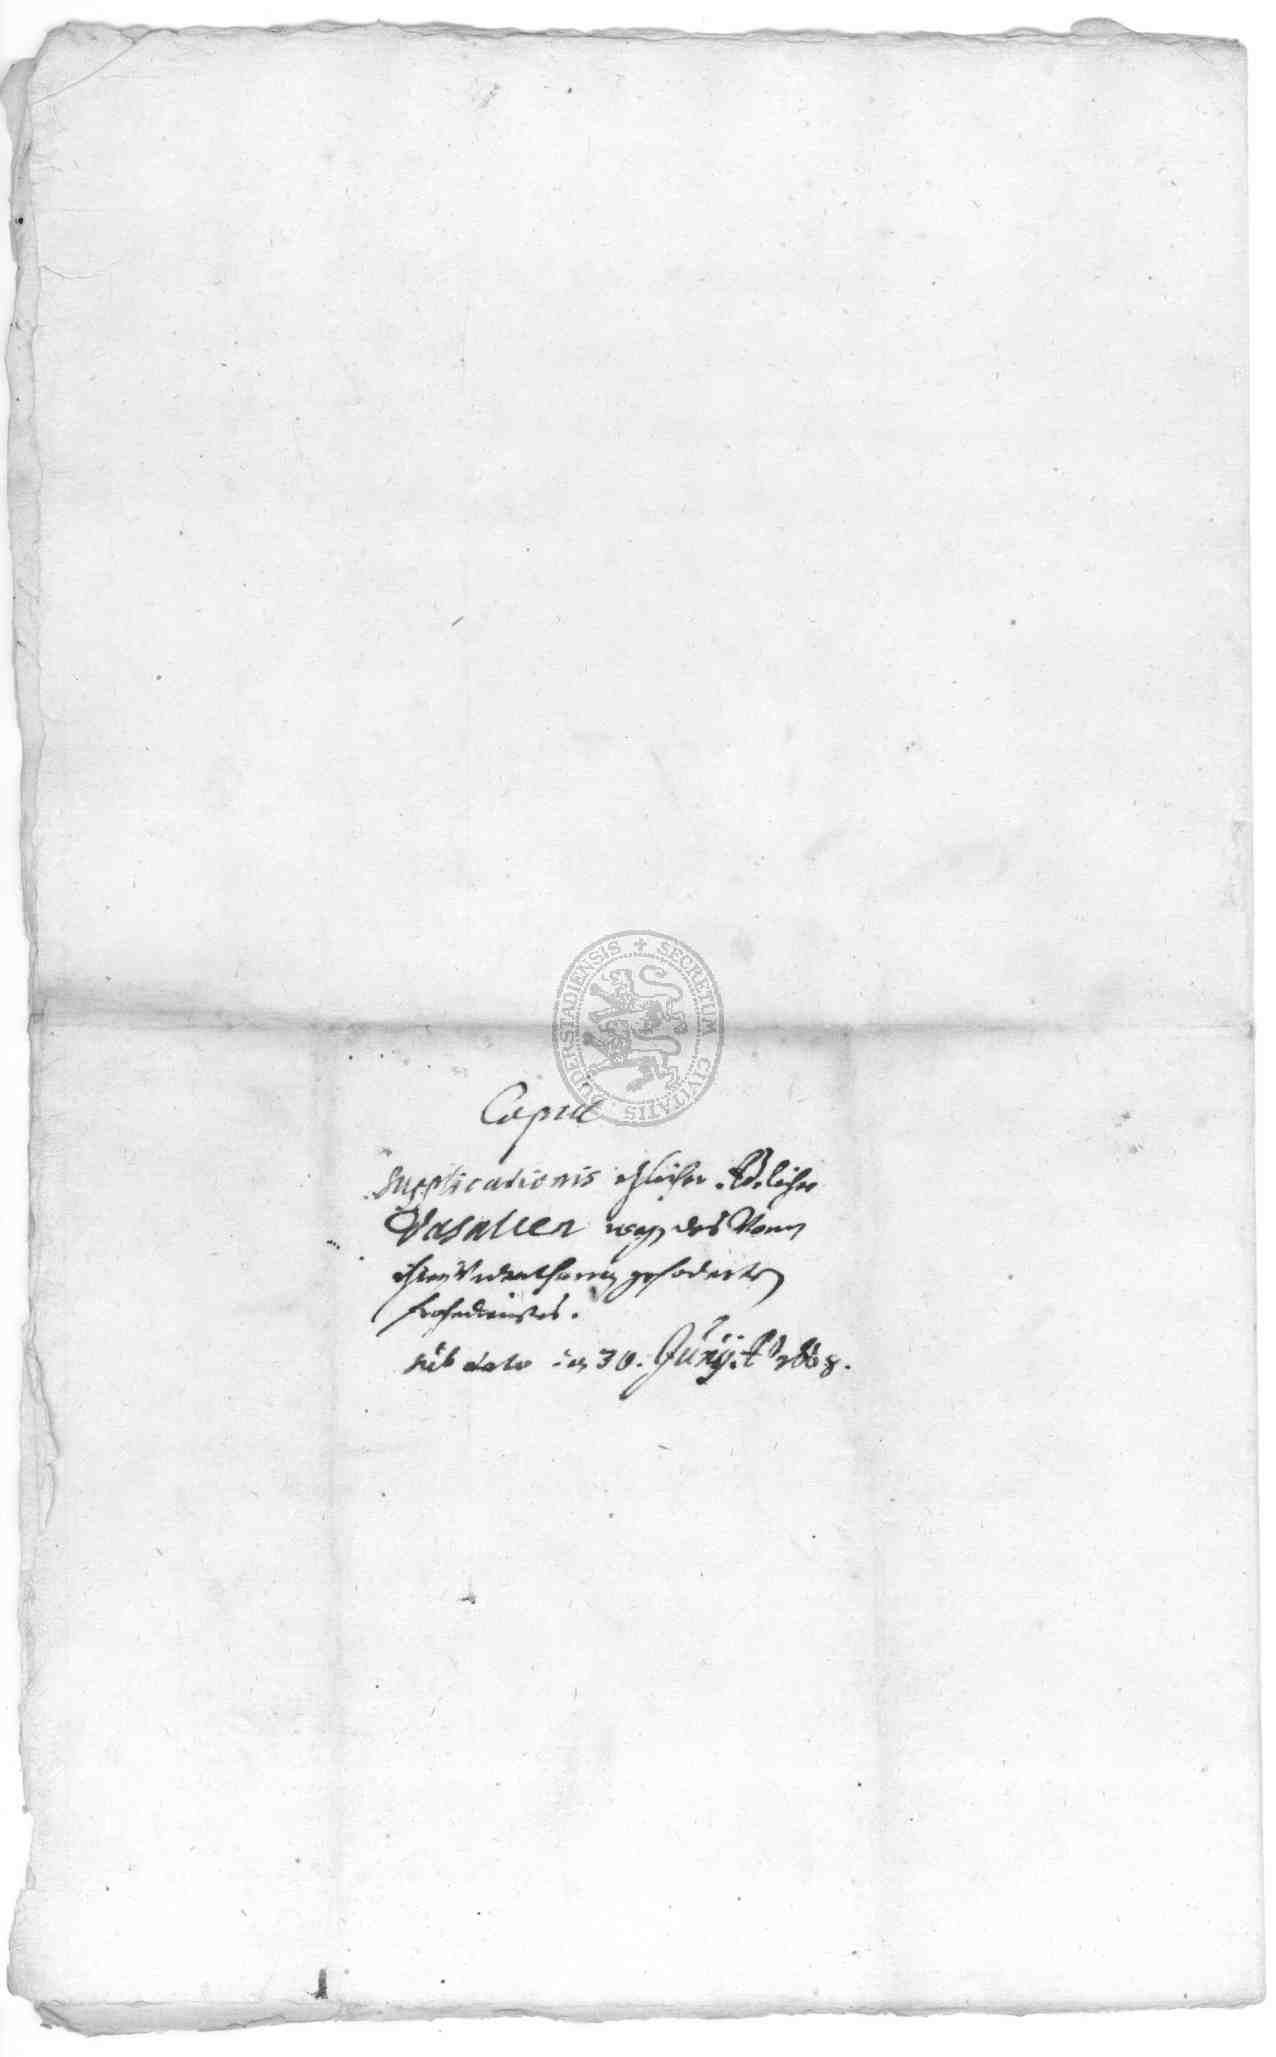 SECRETUM CIVITATIS DUDERSTADIENSIS
Copia
Supplicationis etlicher Adelicher
Vasallen weg des Von
ihren gefoderten
frohndienstes.
sub dato den 30. Junij. Ao 1608.